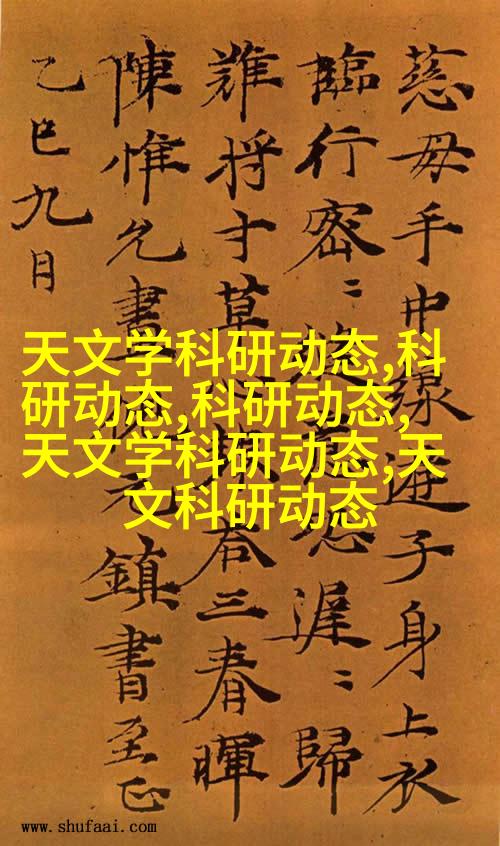 慈母手中線遊子身上衣
臨行密〻意恐遲〻歸
難将寸草荅三春暉
陳惟允畫元鎮書至正
乙巳九月
天文学科研动态,科
研动态,科研动态,
天文学科研动态,天
文科研动态
www.shufaai.com